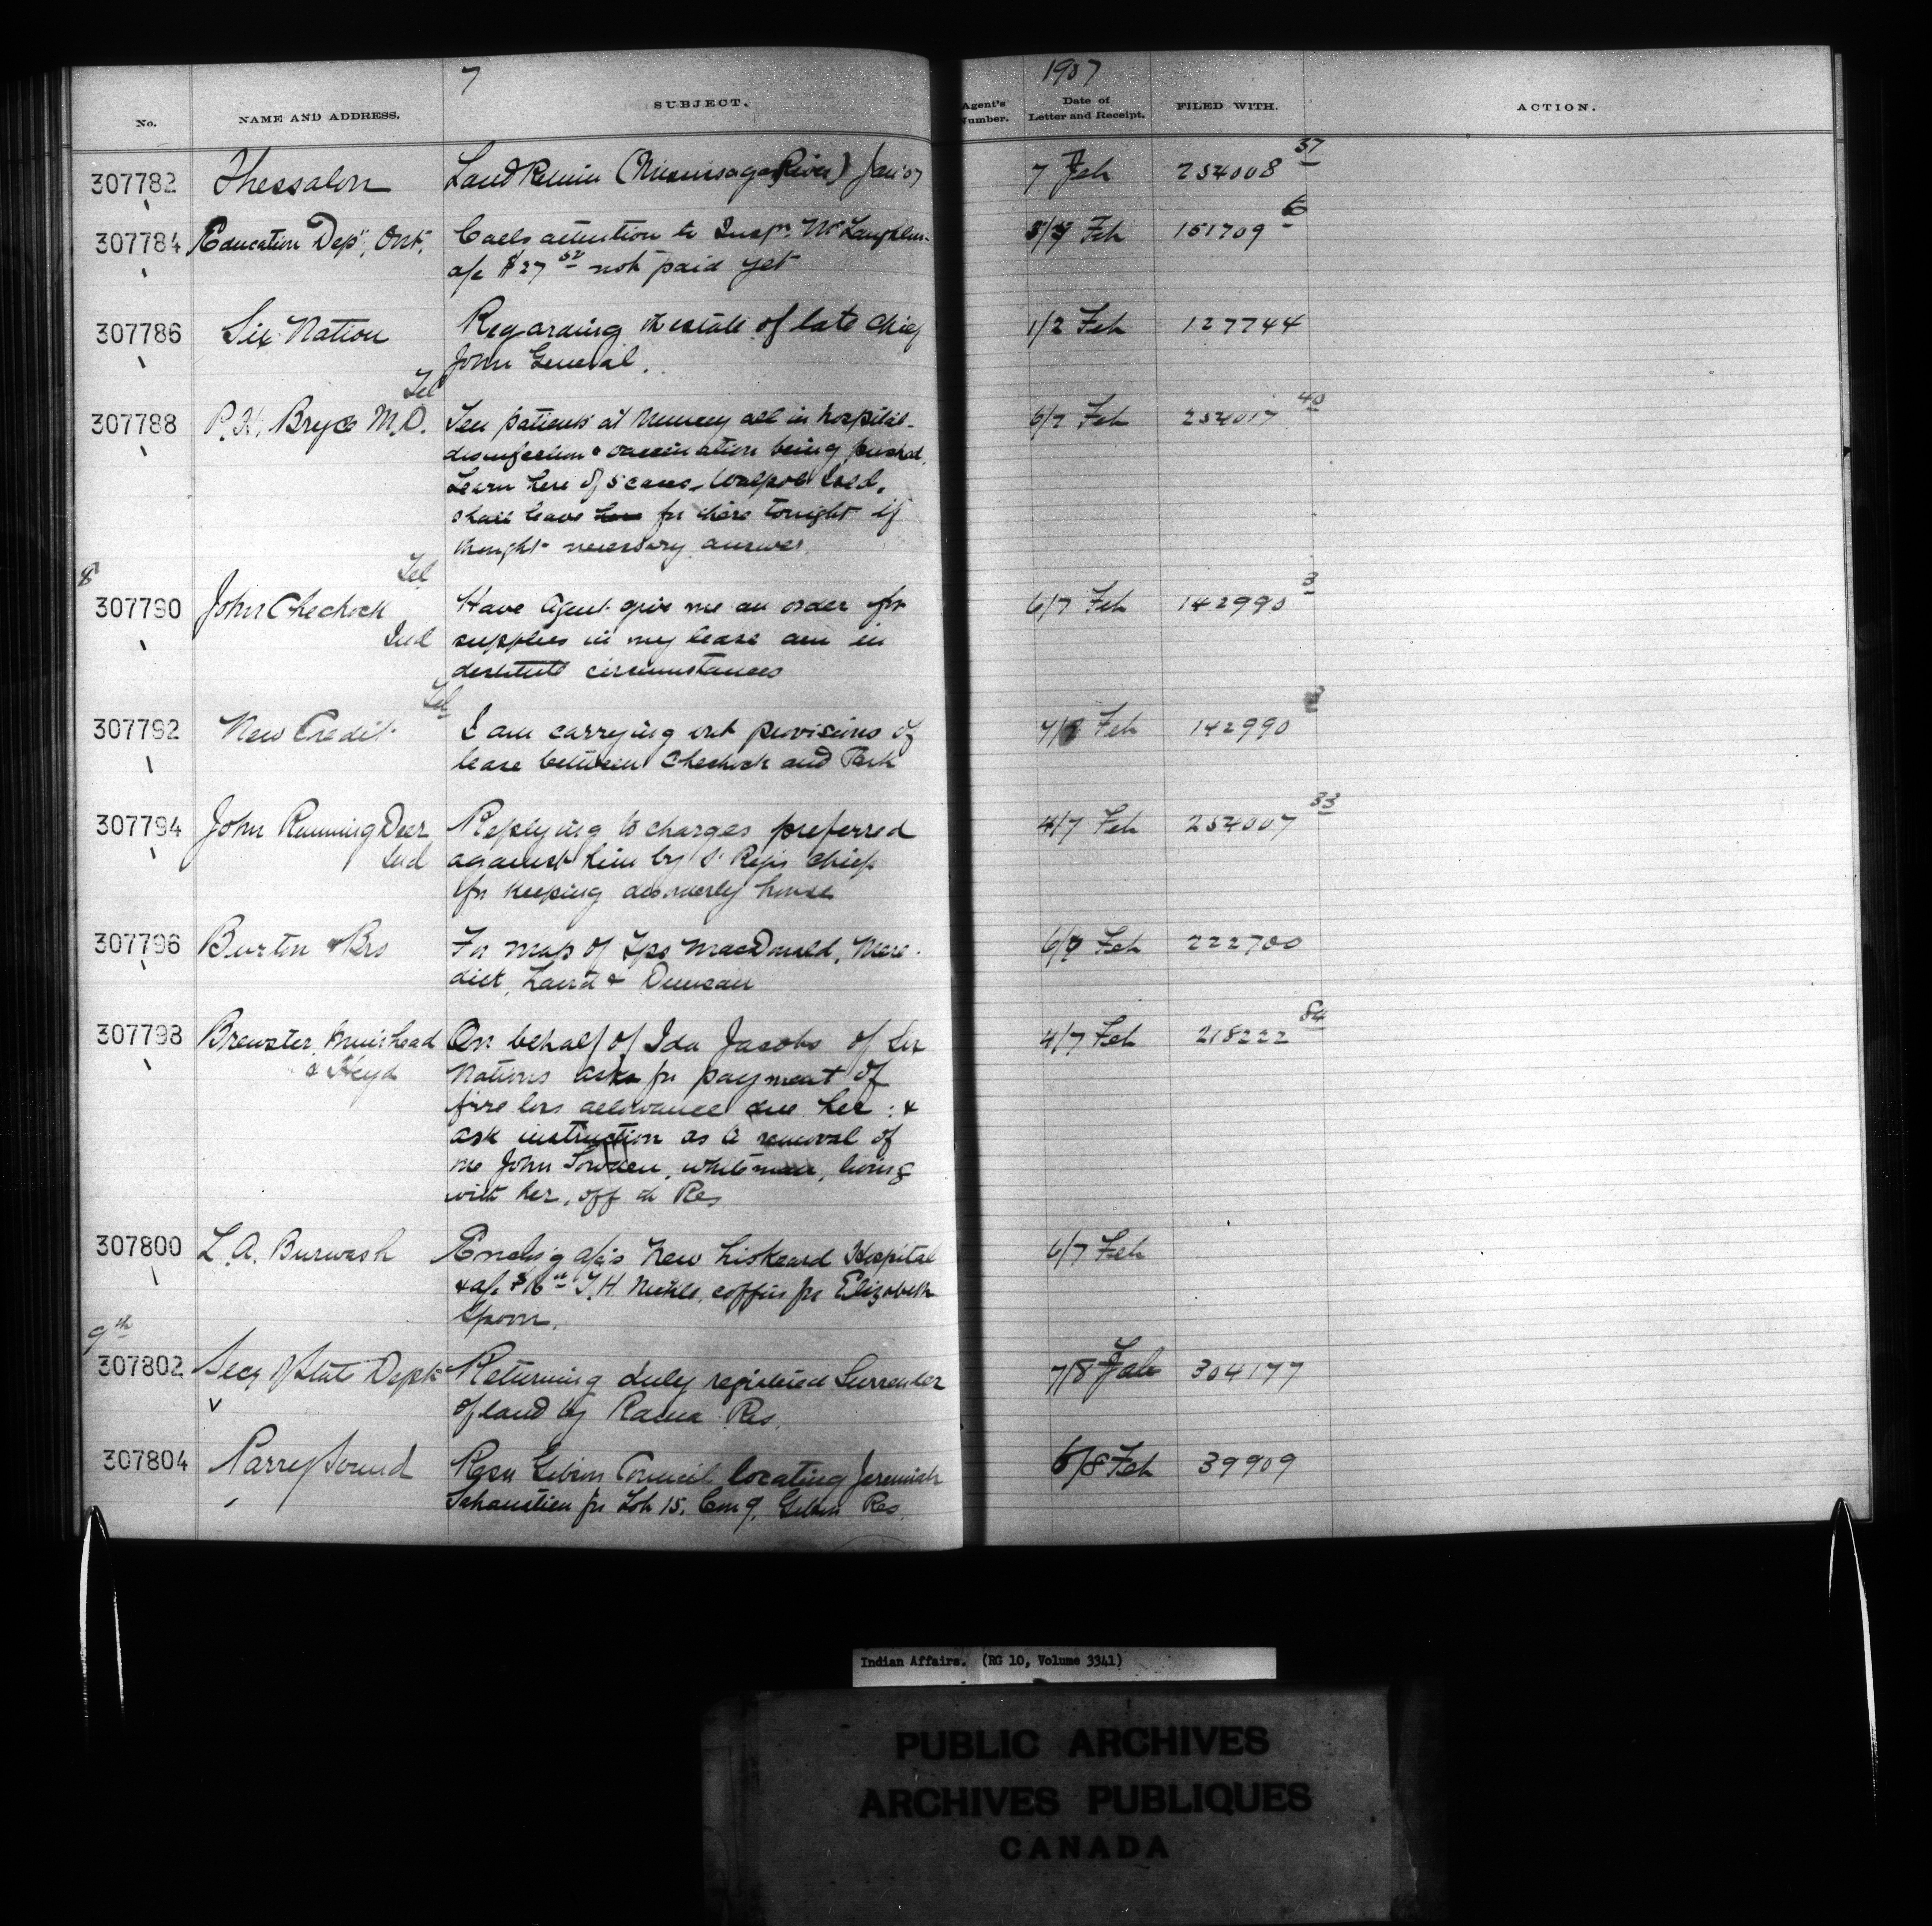 7
1907
No.
NAME AND ADDRESS.
SUBJECT.
Agent's Number.
Date of Letter and Receipt.
FILED WITH.
ACTION.
307782 Thessalon Land Return (Mississaga River) Jan'07 7 Feb 254008 37
307784 Education Dept, Ont. Calls attention to Inspr. McLaughlin 5/7 Feb 151709 6
a/c $27 50 not paid yet
307786 Six Nation Regarding estate of late Chief 1/2 Feb 127744
John General.
Tel
307788 P.H. Bryce M.D. Ten patients at Muncey all in hospital- 6/7 Feb 254017 40
disinfection & vaccination being pushed.
Learn here of 5 cases Walpole Isld.
shall leave here for there tonight if
thought necessary answer
8 Tel
307790 John Chechock Have Agent give me an order for 6/7 Feb 142990 3
Ind supplies in my lease am in
destitute circumstances
Tel
307792 New Credit I am carrying out provisions of 7/ Feb 142990
lease between Chechock and Park
307794 John Running Deer Replying to charges preferred 4/7 Feb 254007 33
Ind against him by St Regis Chiefs
for keeping disorderly house
307796 Burton & Bro For map of Tps MacDonald, Mere- 6/7 Feb 222700
dith, Laird & Duncan
307798 Brewster, Muirhead On behalf of Ida Jacobs of Six 4/7 Feb 218222 84
& Heyd Nations asks for payment of
fire loss allowance due her: &
ask instruction as to removal of
one John whiteman, living
with her, off the Res
307800 L.A. Burwash Enclos'g a/cs New Liskeard Hospital 6/7 Feb
& a/c $16 T.H. coffin for Elizabeth
Spoon.
9th
307802 Secy of State Dept Returning duly registered Surrender 7/8 Feb 304177
of land by Rama Res.
307804 Parry Sound Resn Gibson Council locating Jeremiah 6/8 Feb 39909
for Lot 15, Con 9, Gibson Res.
Indian Affairs. (RG 10, Volume 3341)
PUBLIC ARCHIVES
ARCHIVES PUBLIQUES
CANADA